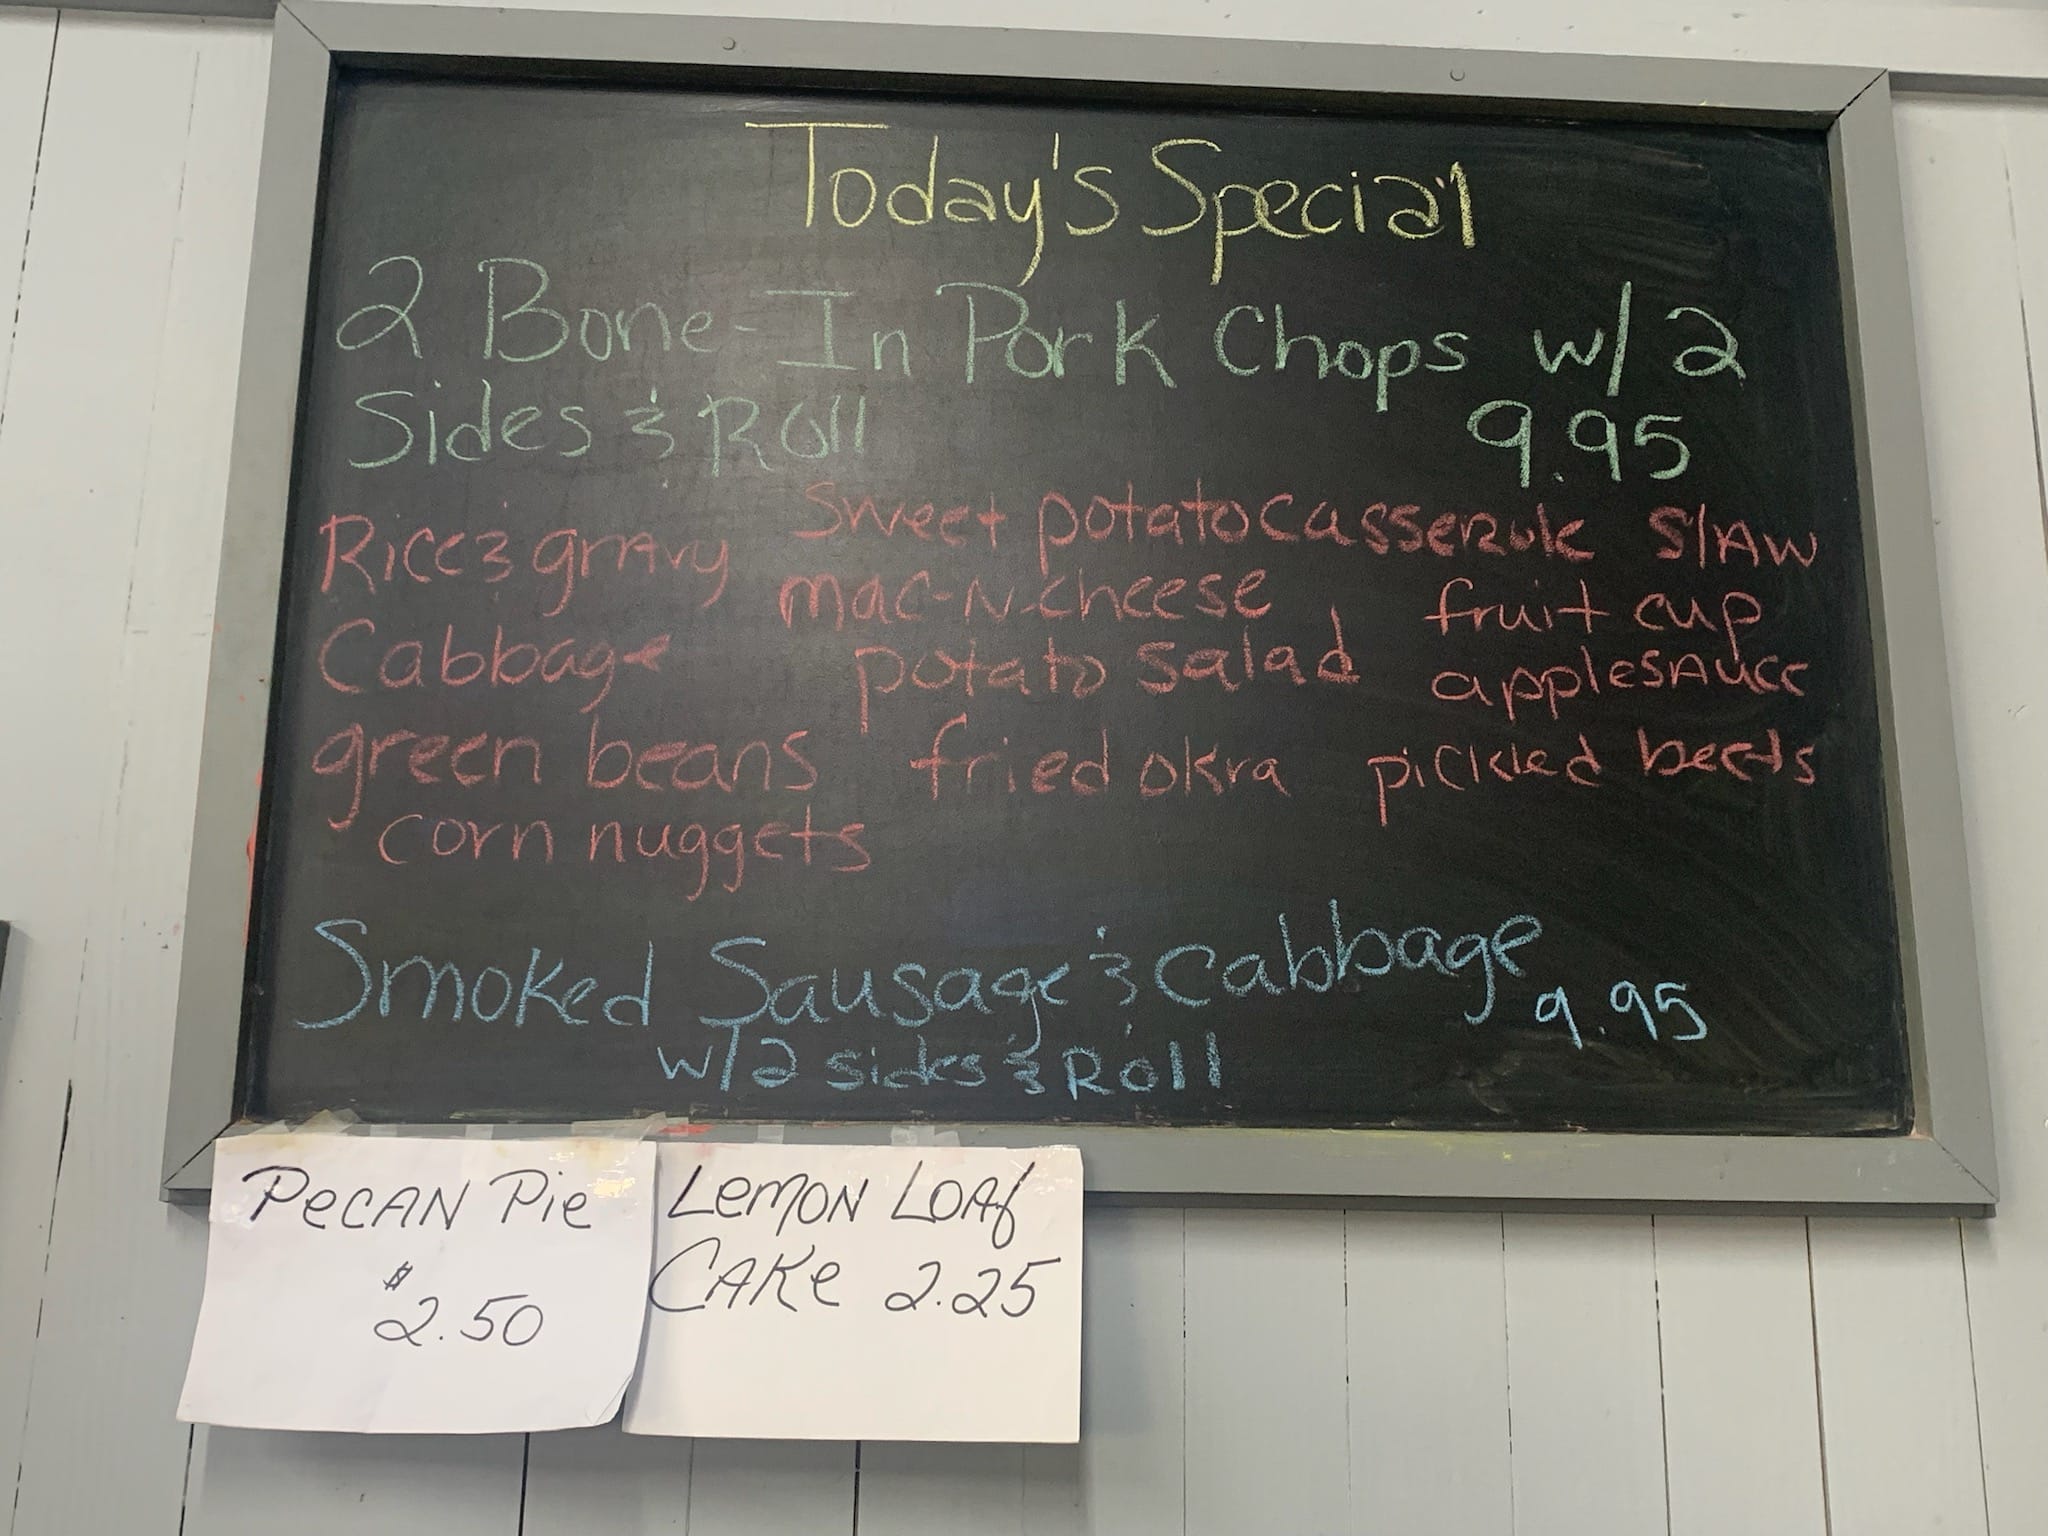 Today's Special
2 Bone-In Pork Chops w/ 2
Sides & Roll 9.95
Rice & gravy Sweet potato Casserole Slaw
mac-N-cheese fruit cup
Cabbage potato salad applesauce
green beans fried okra pickled beets
corn nuggets
Smoked Sausage & Cabbage 9.95
w/2 sides & Roll
Pecan Pie
$2.50
Lemon Loaf
Cake 2.25